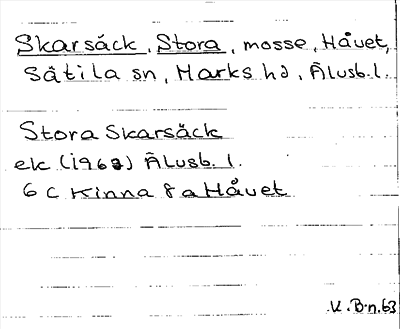 Skarsäck, Stora, mosse, Håvet,
Sätila sn, Marks hd, Älvsb. l.
Stora Skarsäck
ek (1962) Älvsb. l.
6 C Kinna 8 a Håvet
V. B-n. 63